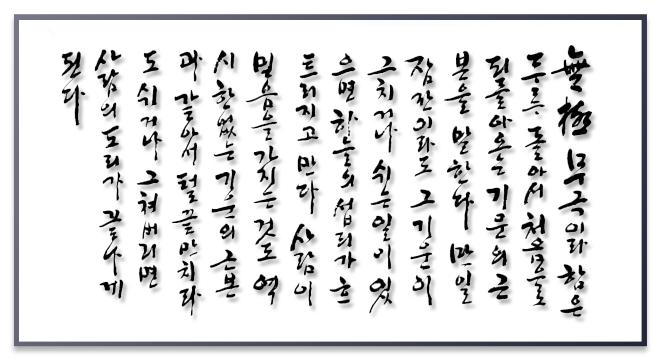 無極 무극이라 함은
두루 돌아서 처음으로
되돌아오는 기운의 근
본을 말한다 만일
잠깐이라도 그 기운이
그치거나 쉬는 일이 있
으면 하늘의 섭리가 흐
트러지고 만다 사람이
믿음을 가지는 것도 역
시 한없는 기운의 근본
과 같아서 털끝만치라
도 쉬거나 그쳐버리면
사람의 도리가 끝나게
된다